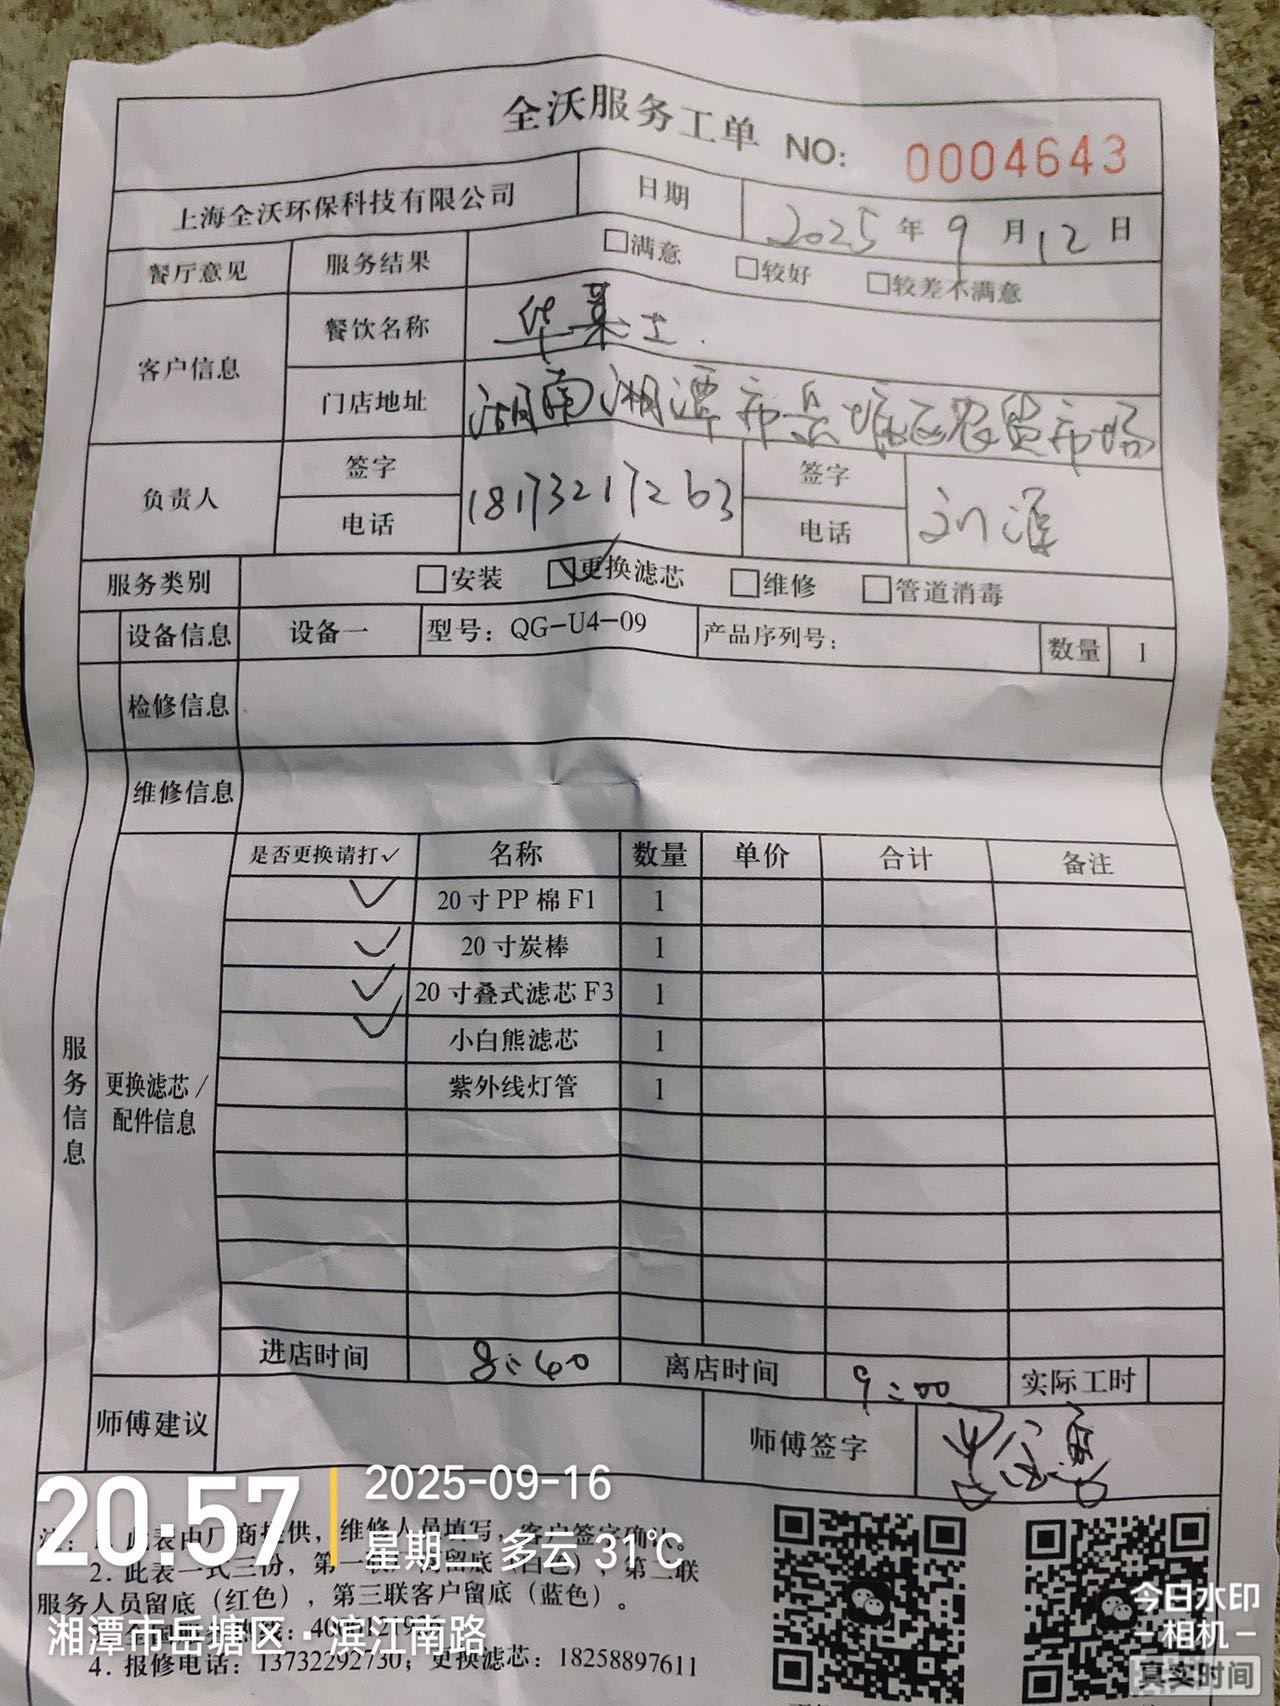 全沃服务工单 NO: 0004643
上海全沃环保科技有限公司 日期 2025 年 9 月 12 日
餐厅意见 服务结果 □满意 □较好 □较差不满意
客户信息 餐饮名称 华莱士
门店地址 湖南湘潭市岳塘区农贸市场
负责人 签字 签字
电话 18173217263 电话
服务类别 □安装 ☑更换滤芯 □维修 □管道消毒
设备信息 设备一 型号：QG-U4-09 产品序列号： 数量 1
检修信息
维修信息
服务信息
更换滤芯/
配件信息
是否更换请打✓ 名称 数量 单价 合计 备注
✓ 20寸PP棉F1 1
✓ 20寸炭棒 1
✓ 20寸叠式滤芯F3 1
✓ 小白熊滤芯 1
紫外线灯管 1
进店时间 8:40 离店时间 9:00 实际工时
师傅建议 师傅签字
注：1. 此表由厂商提供，维修人员填写，客户签字确认。
2. 此表一式三份，第一联 留底（白色），第二联
服务人员留底（红色），第三联客户留底（蓝色）。
4. 报修电话：13732292730；更换滤芯：18258897611
20:57
2025-09-16
星期二 多云 31℃
湘潭市岳塘区·滨江南路
今日水印
-相机-
真实时间